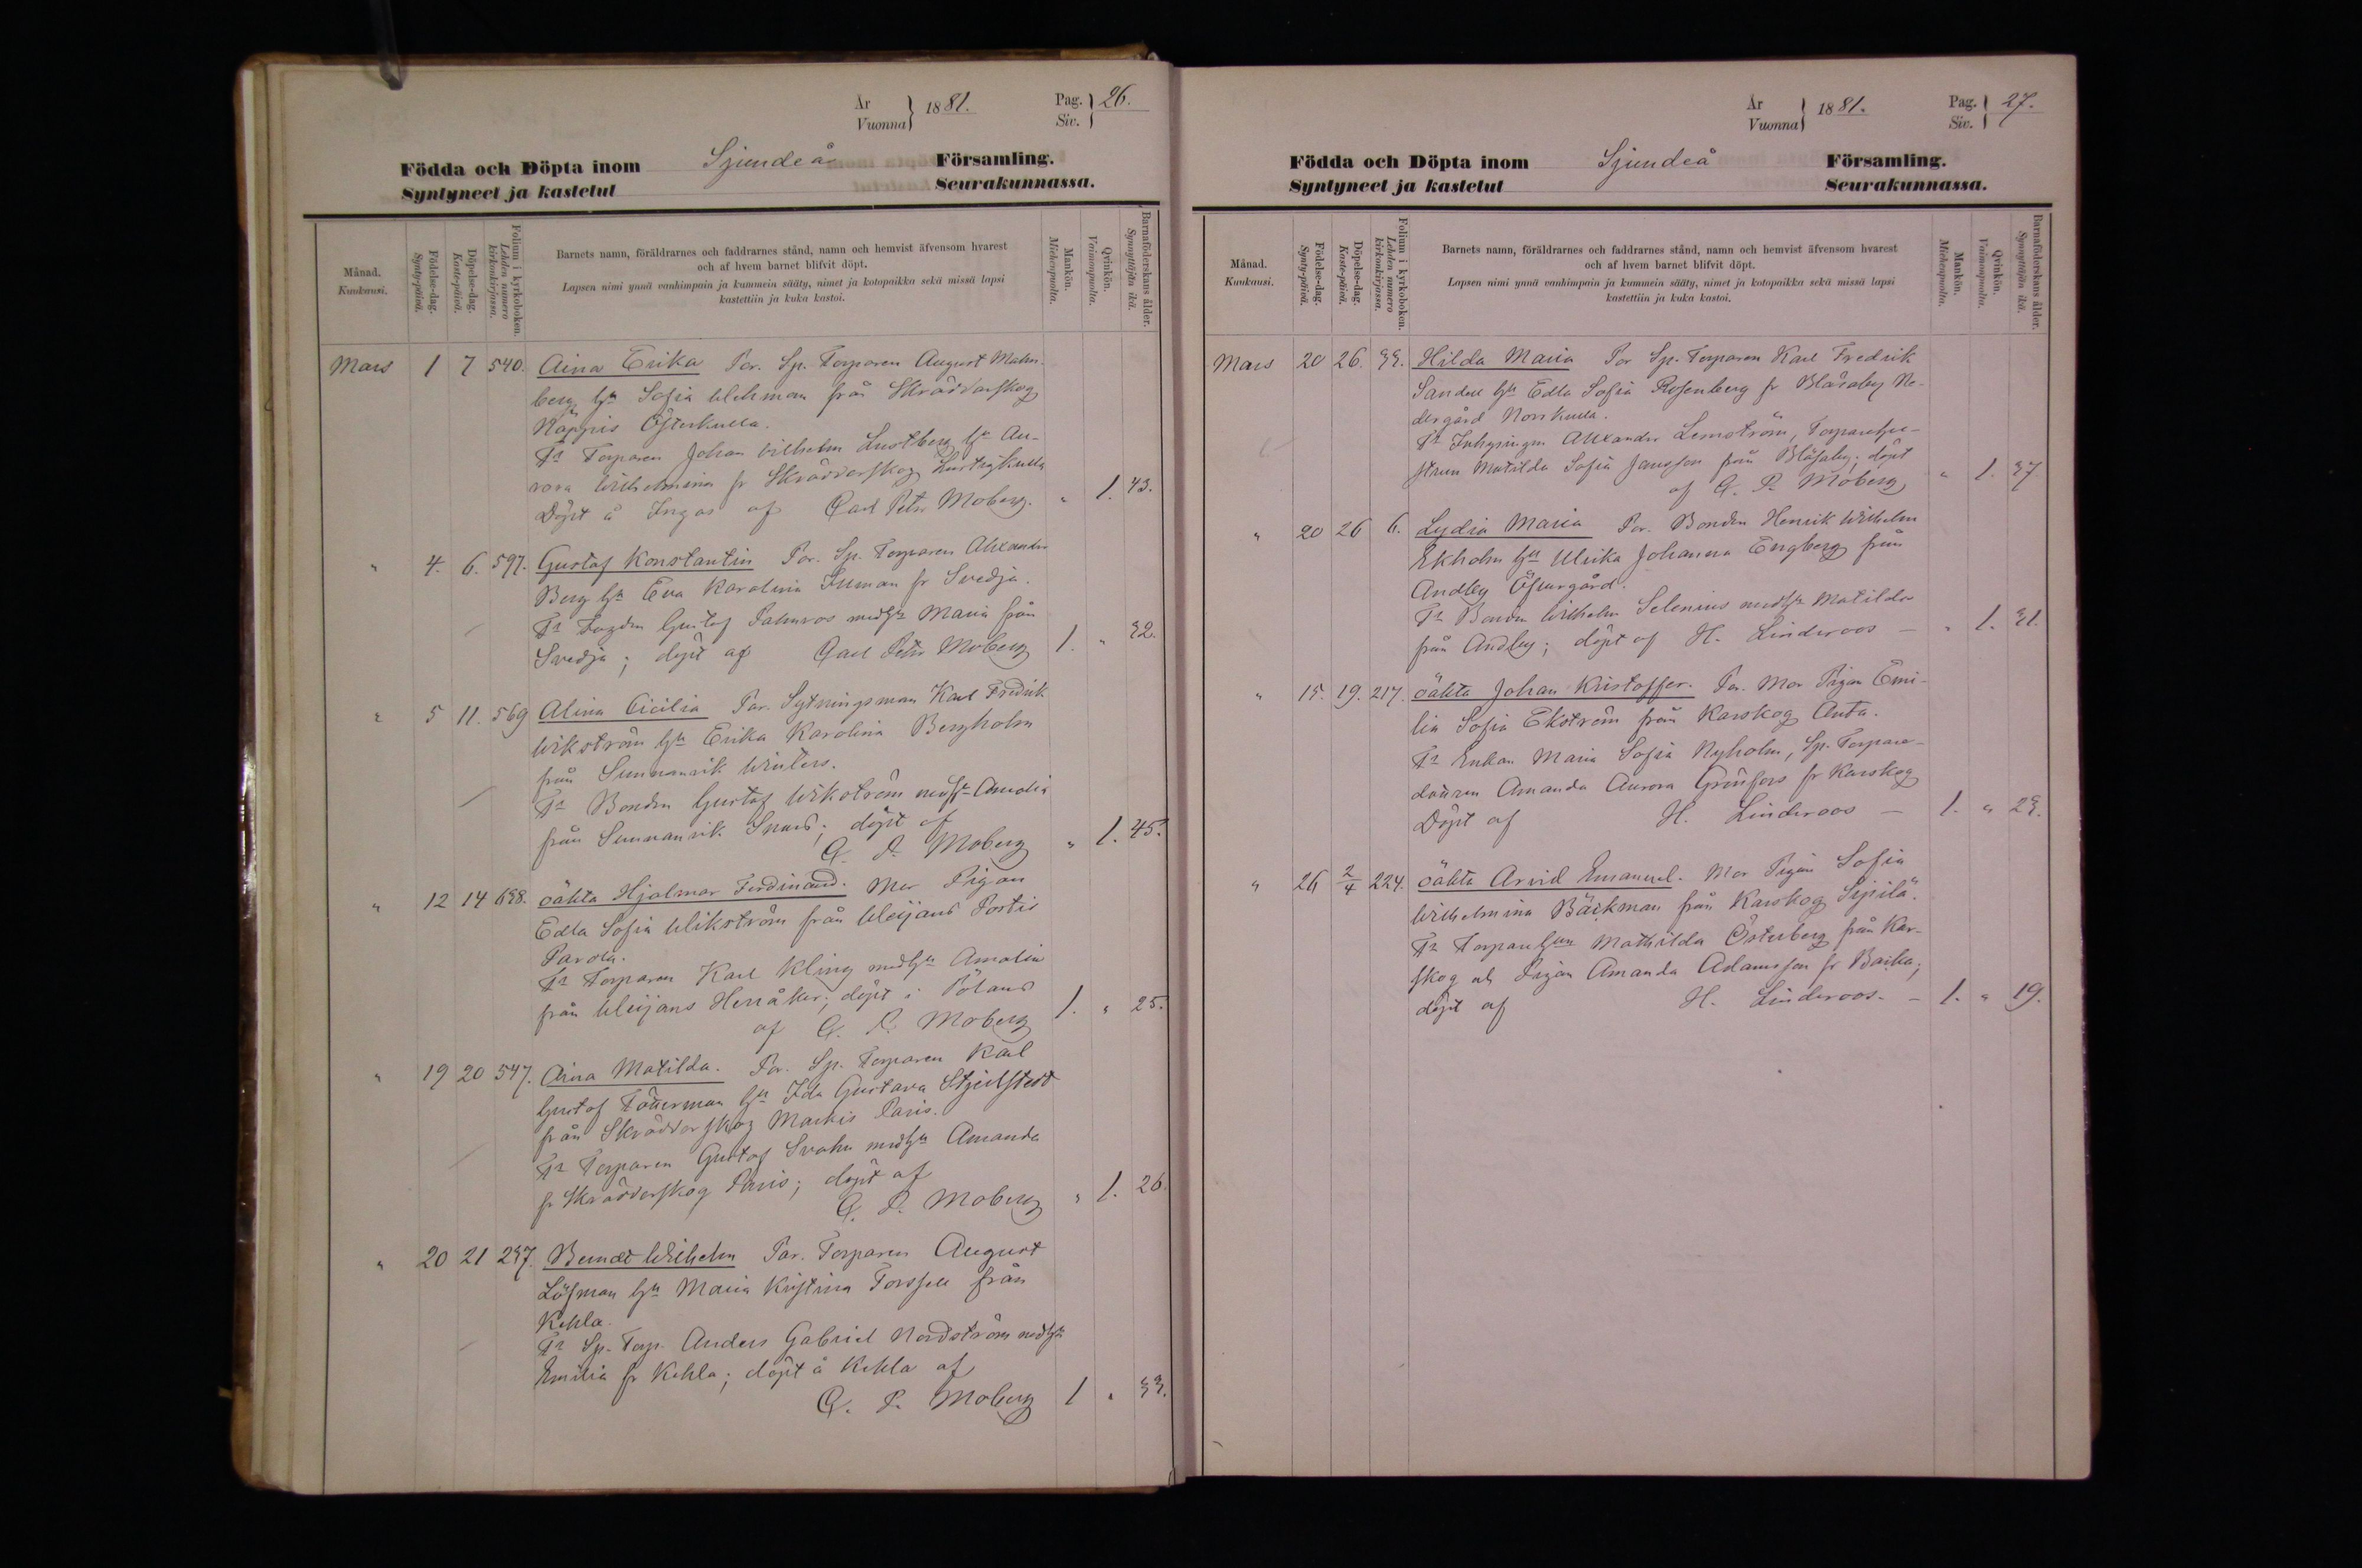 År
Vuonna
1881.
Pag.
Siv.
26.
Födda och Döpta inom Sjundeå Församling.
Syntyneet ja kastetut Seurakunnassa.
Månad.
Kuukausi.
Födelse-dag.
Synty-päivä.
Döpelse-dag.
Kaste-päivä.
Folium i kyrkoboken.
Lehden numero kirkonkirjassa.
Barnets namn, föräldrarnes och faddrarnes stånd, namn och hemvist äfvensom hvarest
och af hvem barnet blifvit döpt.
Lapsen nimi ynnä vanhimpain ja kummein sääty, nimet ja kotopaikka sekä missä lapsi
kastettiin ja kuka kastoi.
Mankön.
Miehenpuolta.
Qvinkön.
Vaimonpuolta.
Barnaföderskans ålder.
Synnyttäjän ikä.
Mars 1 7 540. Aina Erika Par. Sp. Torparen August Malm-
berg hu Sofia Uhman från Skräddarskog
Näppis Österkulla.
Fr Torparen Johan Vilhelm Lustberg hu Au-
rora Wilhelmina fr Skräddarskog
Döpt å Ingas af Carl Petr Moberg. " 1. 43.
" 4. 6. 597. Gustaf Konstantin Par. Sp. Torparen Alexander
Berg hu Eva Karolina Inman fr Svedja.
Fr Gustaf Palmros med hu Maria från
Svedja; döpt af Carl Petr Moberg 1. " 32.
" 5 11. 569 Alina Cicilia Par. Sytningsman Karl Fredrik
Wikström hu Erika Karolina Bergholm
från Sunnanvik Winters.
Fr Bonden Gustaf Wikström med hu Amalia
från Sunnanvik Snåls; döpt af
C. P. Moberg " 1. 45.
" 12 14 698. oäkta Hjalmar Ferdinand. Mor Pigan
Edla Sofia Wikström från Weijans Portis
Parola.
Fr Torparen Karl Kling med hu Amalia
från Weijans Herråker; döpt i Pölans
af C. P. Moberg 1. " 25.
" 19 20 547. Aina Matilda. Par. Sp. Torparen Karl
Gustaf Töllerman hu Ida Gustava Stjelstedt
från Skräddarskog Markis Paris.
Fr Torparen Gustaf Svahn med hu Amanda
fr Skräddarskog Paris; döpt af
C. P. Moberg " 1. 26.
" 20 21 297. Berndt Wilhelm Par. Torparen August
Löfman hu Maria Kristina Forssell från
Kehla.
Fr Sp. Torp. Anders Gabriel Nordström med hu
Emilia fr Kehla; döpt å Kehla af
C. P. Moberg 1 " 33.
År
Vuonna
1881.
Pag.
Siv.
27.
Födda och Döpta inom Sjundeå Församling.
Syntyneet ja kastetut Seurakunnassa.
Månad.
Kuukausi.
Födelse-dag.
Synty-päivä.
Döpelse-dag.
Kaste-päivä.
Folium i kyrkoboken.
Lehden numero kirkonkirjassa.
Barnets namn, föräldrarnes och faddrarnes stånd, namn och hemvist äfvensom hvarest
och af hvem barnet blifvit döpt.
Lapsen nimi ynnä vanhimpain ja kummein sääty, nimet ja kotopaikka sekä missä lapsi
kastettiin ja kuka kastoi.
Mankön.
Miehenpuolta.
Qvinkön.
Vaimonpuolta.
Barnaföderskans ålder.
Synnyttäjän ikä.
Mars 20 26. 33. Hilda Maria Par Sp. Torparen Karl Fredrik
Sandell hu Edla Sofia Rosenberg fr Blåsaby Ne-
dergård Norrkulla.
Fr Inhysingen Alexander Lemström, Torparehu-
strun Matilda Sofia Jansson från Blåsaby; döpt
af C. P. Moberg " 1. 37.
" 20 26 6. Lydia Maria Par. Bonden Henrik Wilhelm
Ekholm hu Ulrika Johanna Engberg från
Andby Öfvergård.
Fr Bonden Wilhelm Selenius med hu Matilda
från Andby; döpt af H. Linderoos — " 1. 31.
" 15. 19. 217. oäkta Johan Kristoffer. Par. Mor Pigan Emi-
lia Sofia Ekström från Karskog Anta.
Fr Enkan Maria Sofia Nyholm, Sp. Torpare-
dottren Amanda Aurora Grönfors fr Karskog
Döpt af H. Linderoos — 1. " 23.
" 26 2/4 224. oäkta Arvid Emanuel. Mor Pigan Sofia
Wilhelmina Bäckman från Karskog Sipilä.
Fr Torparehun Mathilda Österberg från Kar-
skog och Pigan Amanda Adamsson fr Backa;
döpt af H. Linderoos. — 1. " 19.